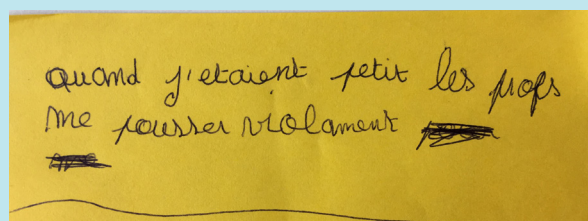 quand j'etaient petit les profs
me pousser violament